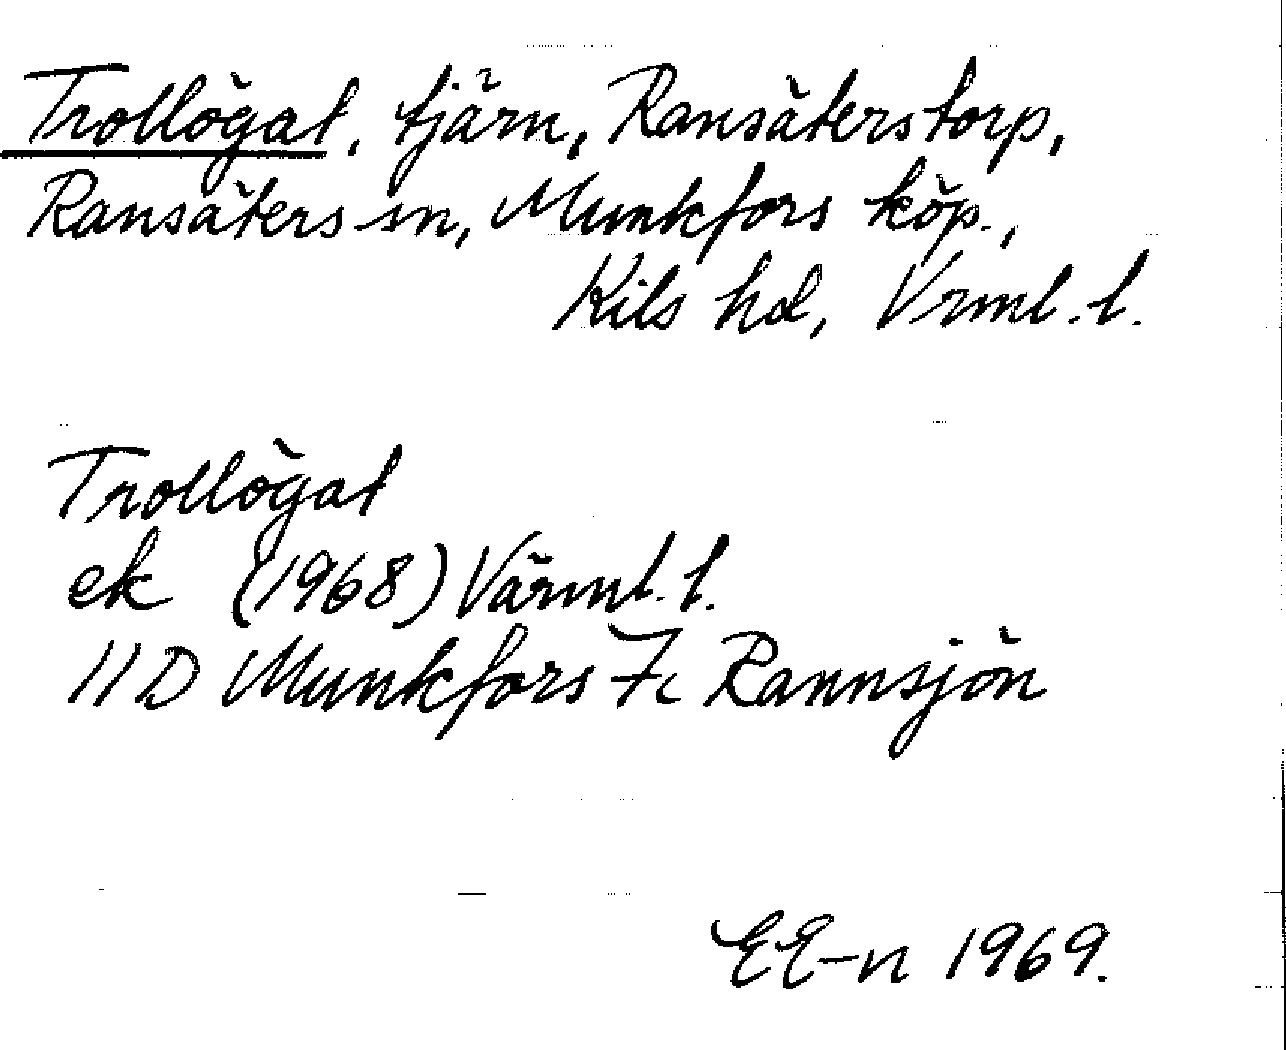 Trollögat, tjärn, Ransäterstorp,
Ransäters sn, Munkfors köp.,
Kils hd, Vrml. l.
Trollögat
ek (1968) Värml. l.
11D Munkfors 7c Rannsjön
EE-n 1969.